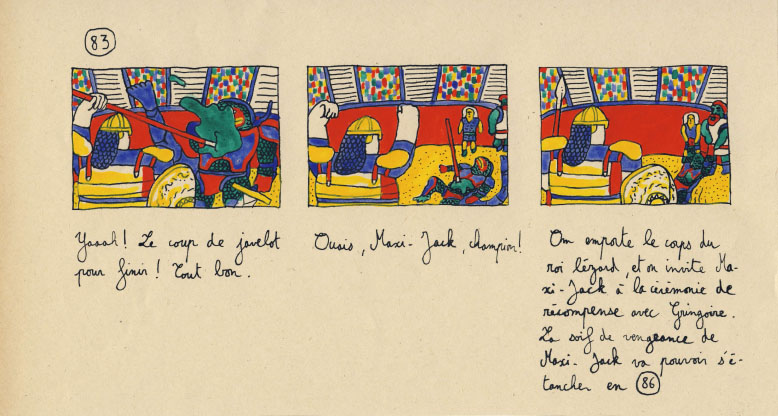 83
Yaaah! Le coup de javelot
pour finir! Tout bon.
Ouais, Maxi-Jack, champion!
On emporte le corps du
roi lézard, et on invite Ma-
xi-Jack à la cérémonie de
récompense avec Gringoire.
La soif de vengeance de
Maxi-Jack va pouvoir s'é-
tancher en 86